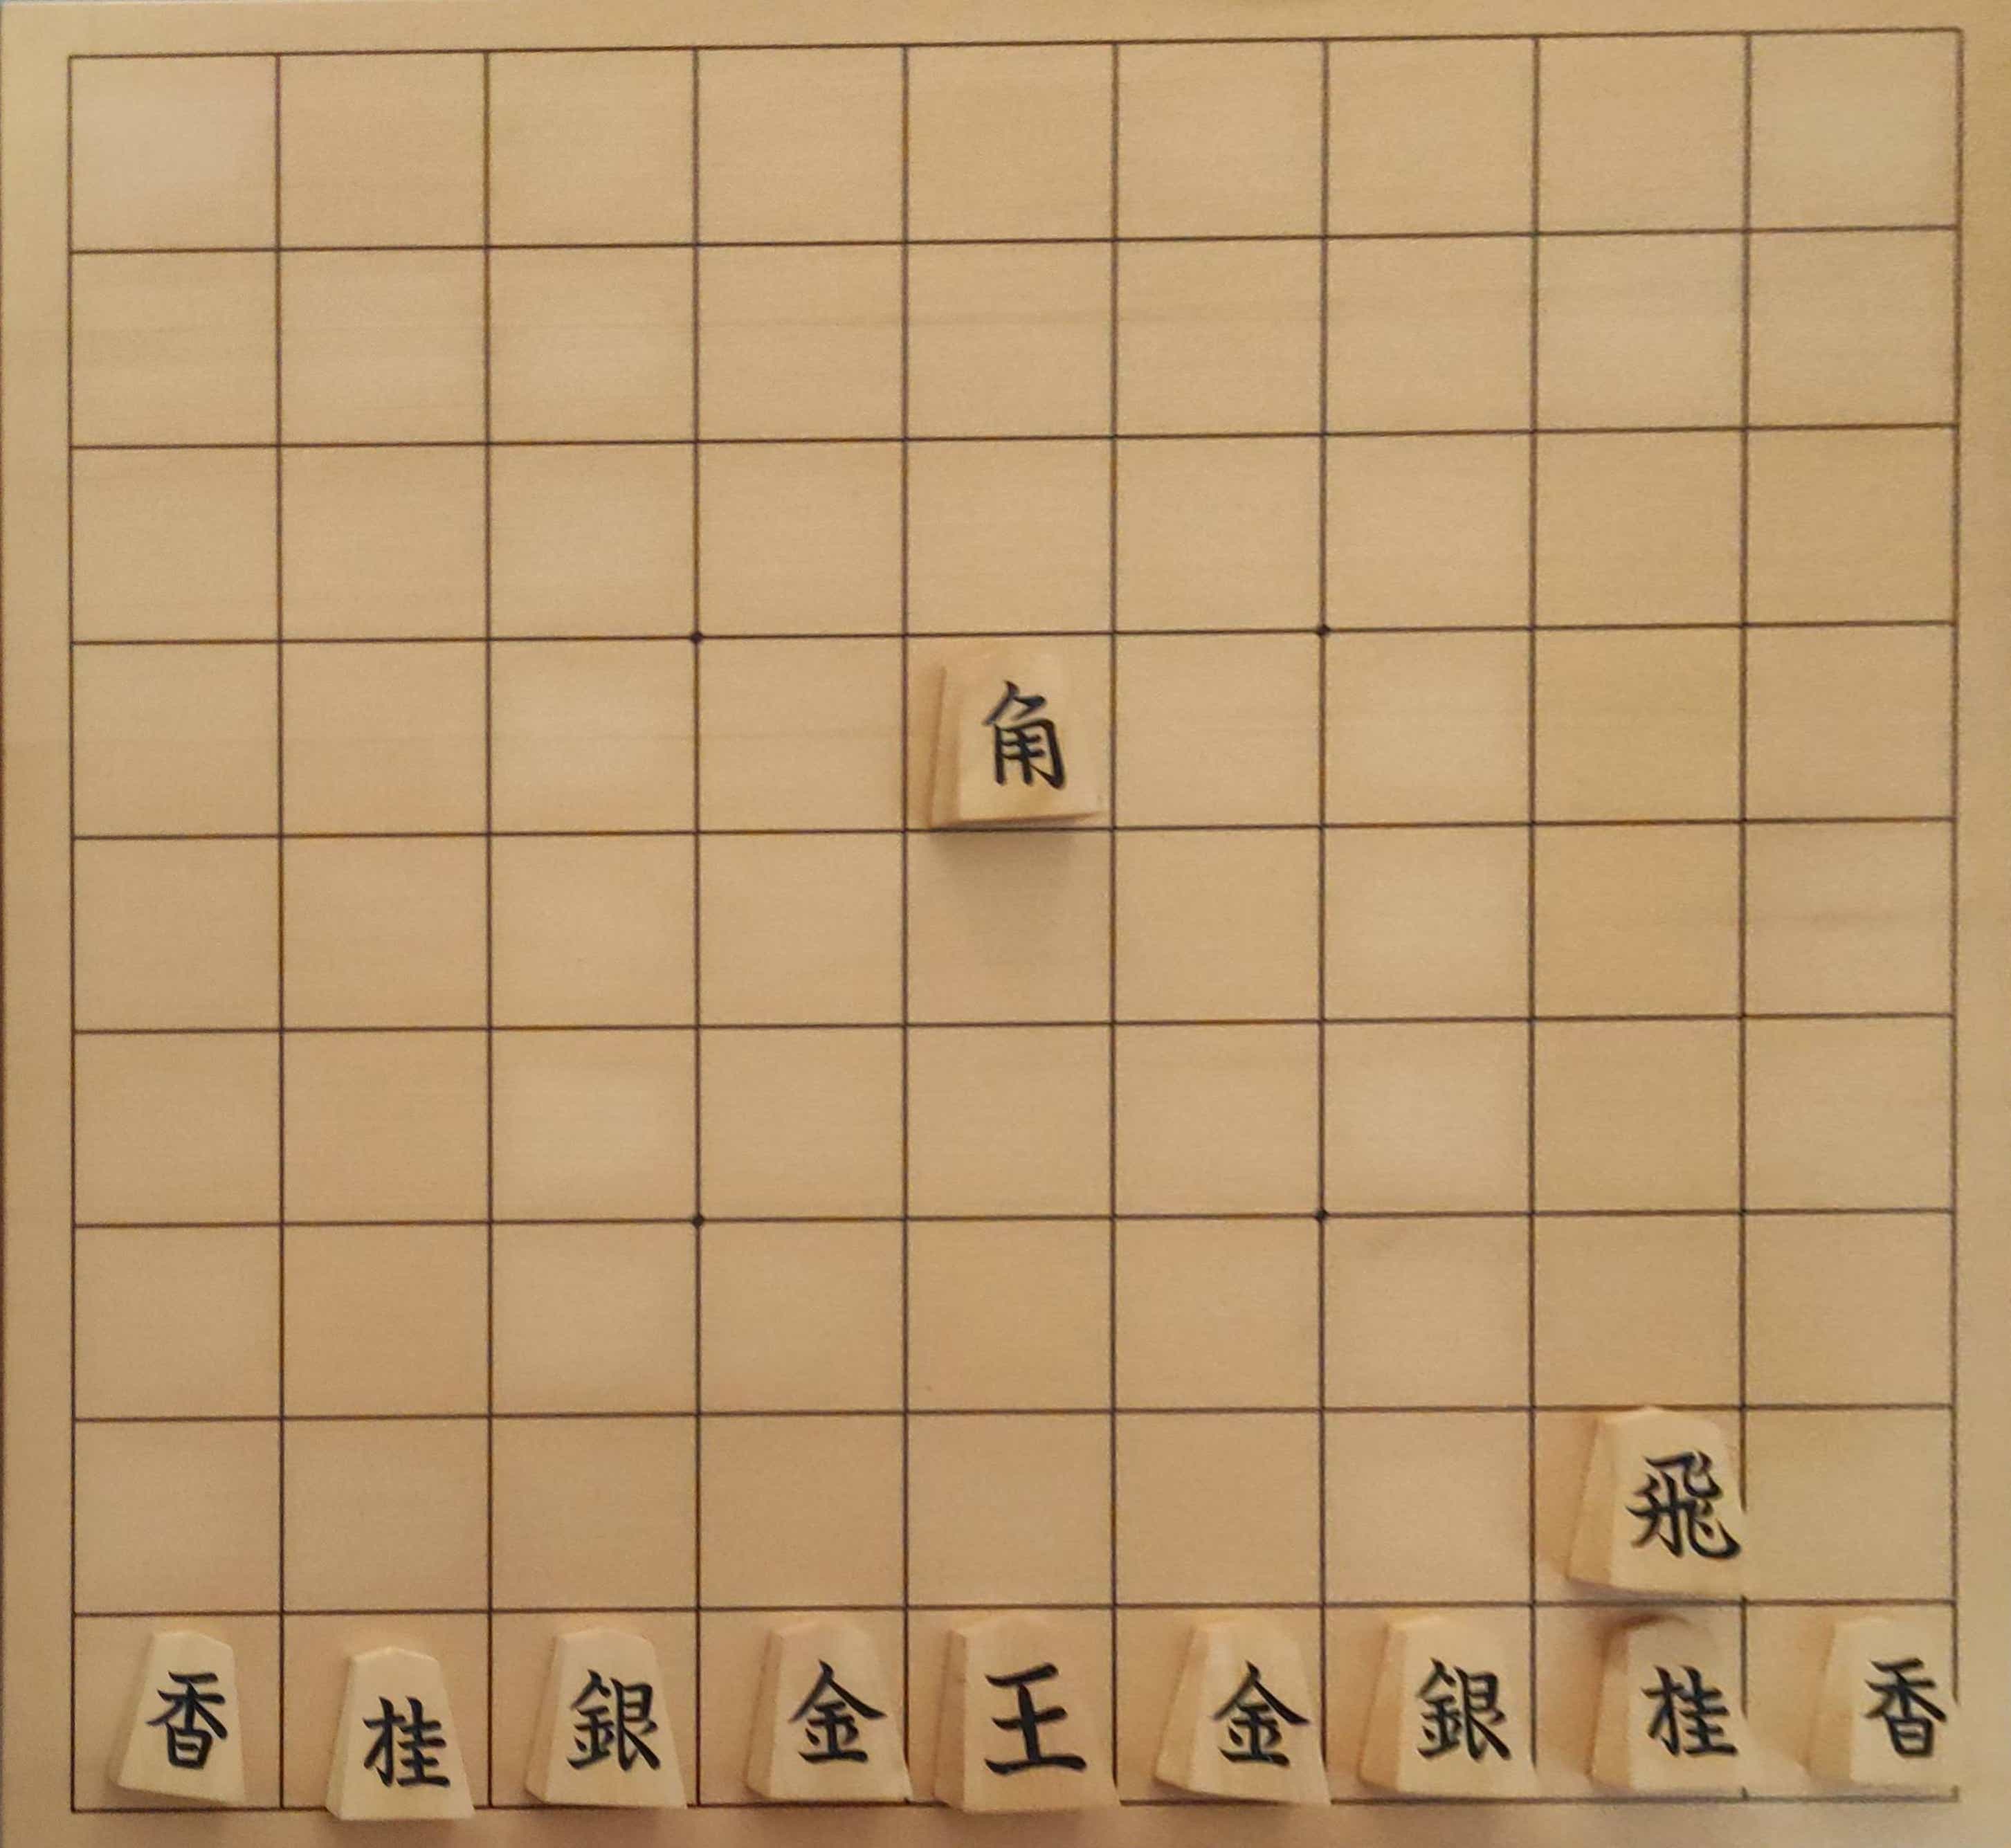 角
飛
香桂銀金王金銀桂香